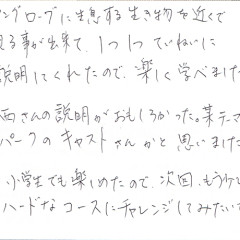 ングローブに生息する生き物を近くで
見る事が出来て、1つ1つていねいに
説明してくれたので、楽しく学べました
西さんの説明がおもしろかった。某テーマ
パークのキャストさんかと思いました
小学生でも楽しめたので、次回、もう少し
ハードなコースにチャレンジしてみたいで